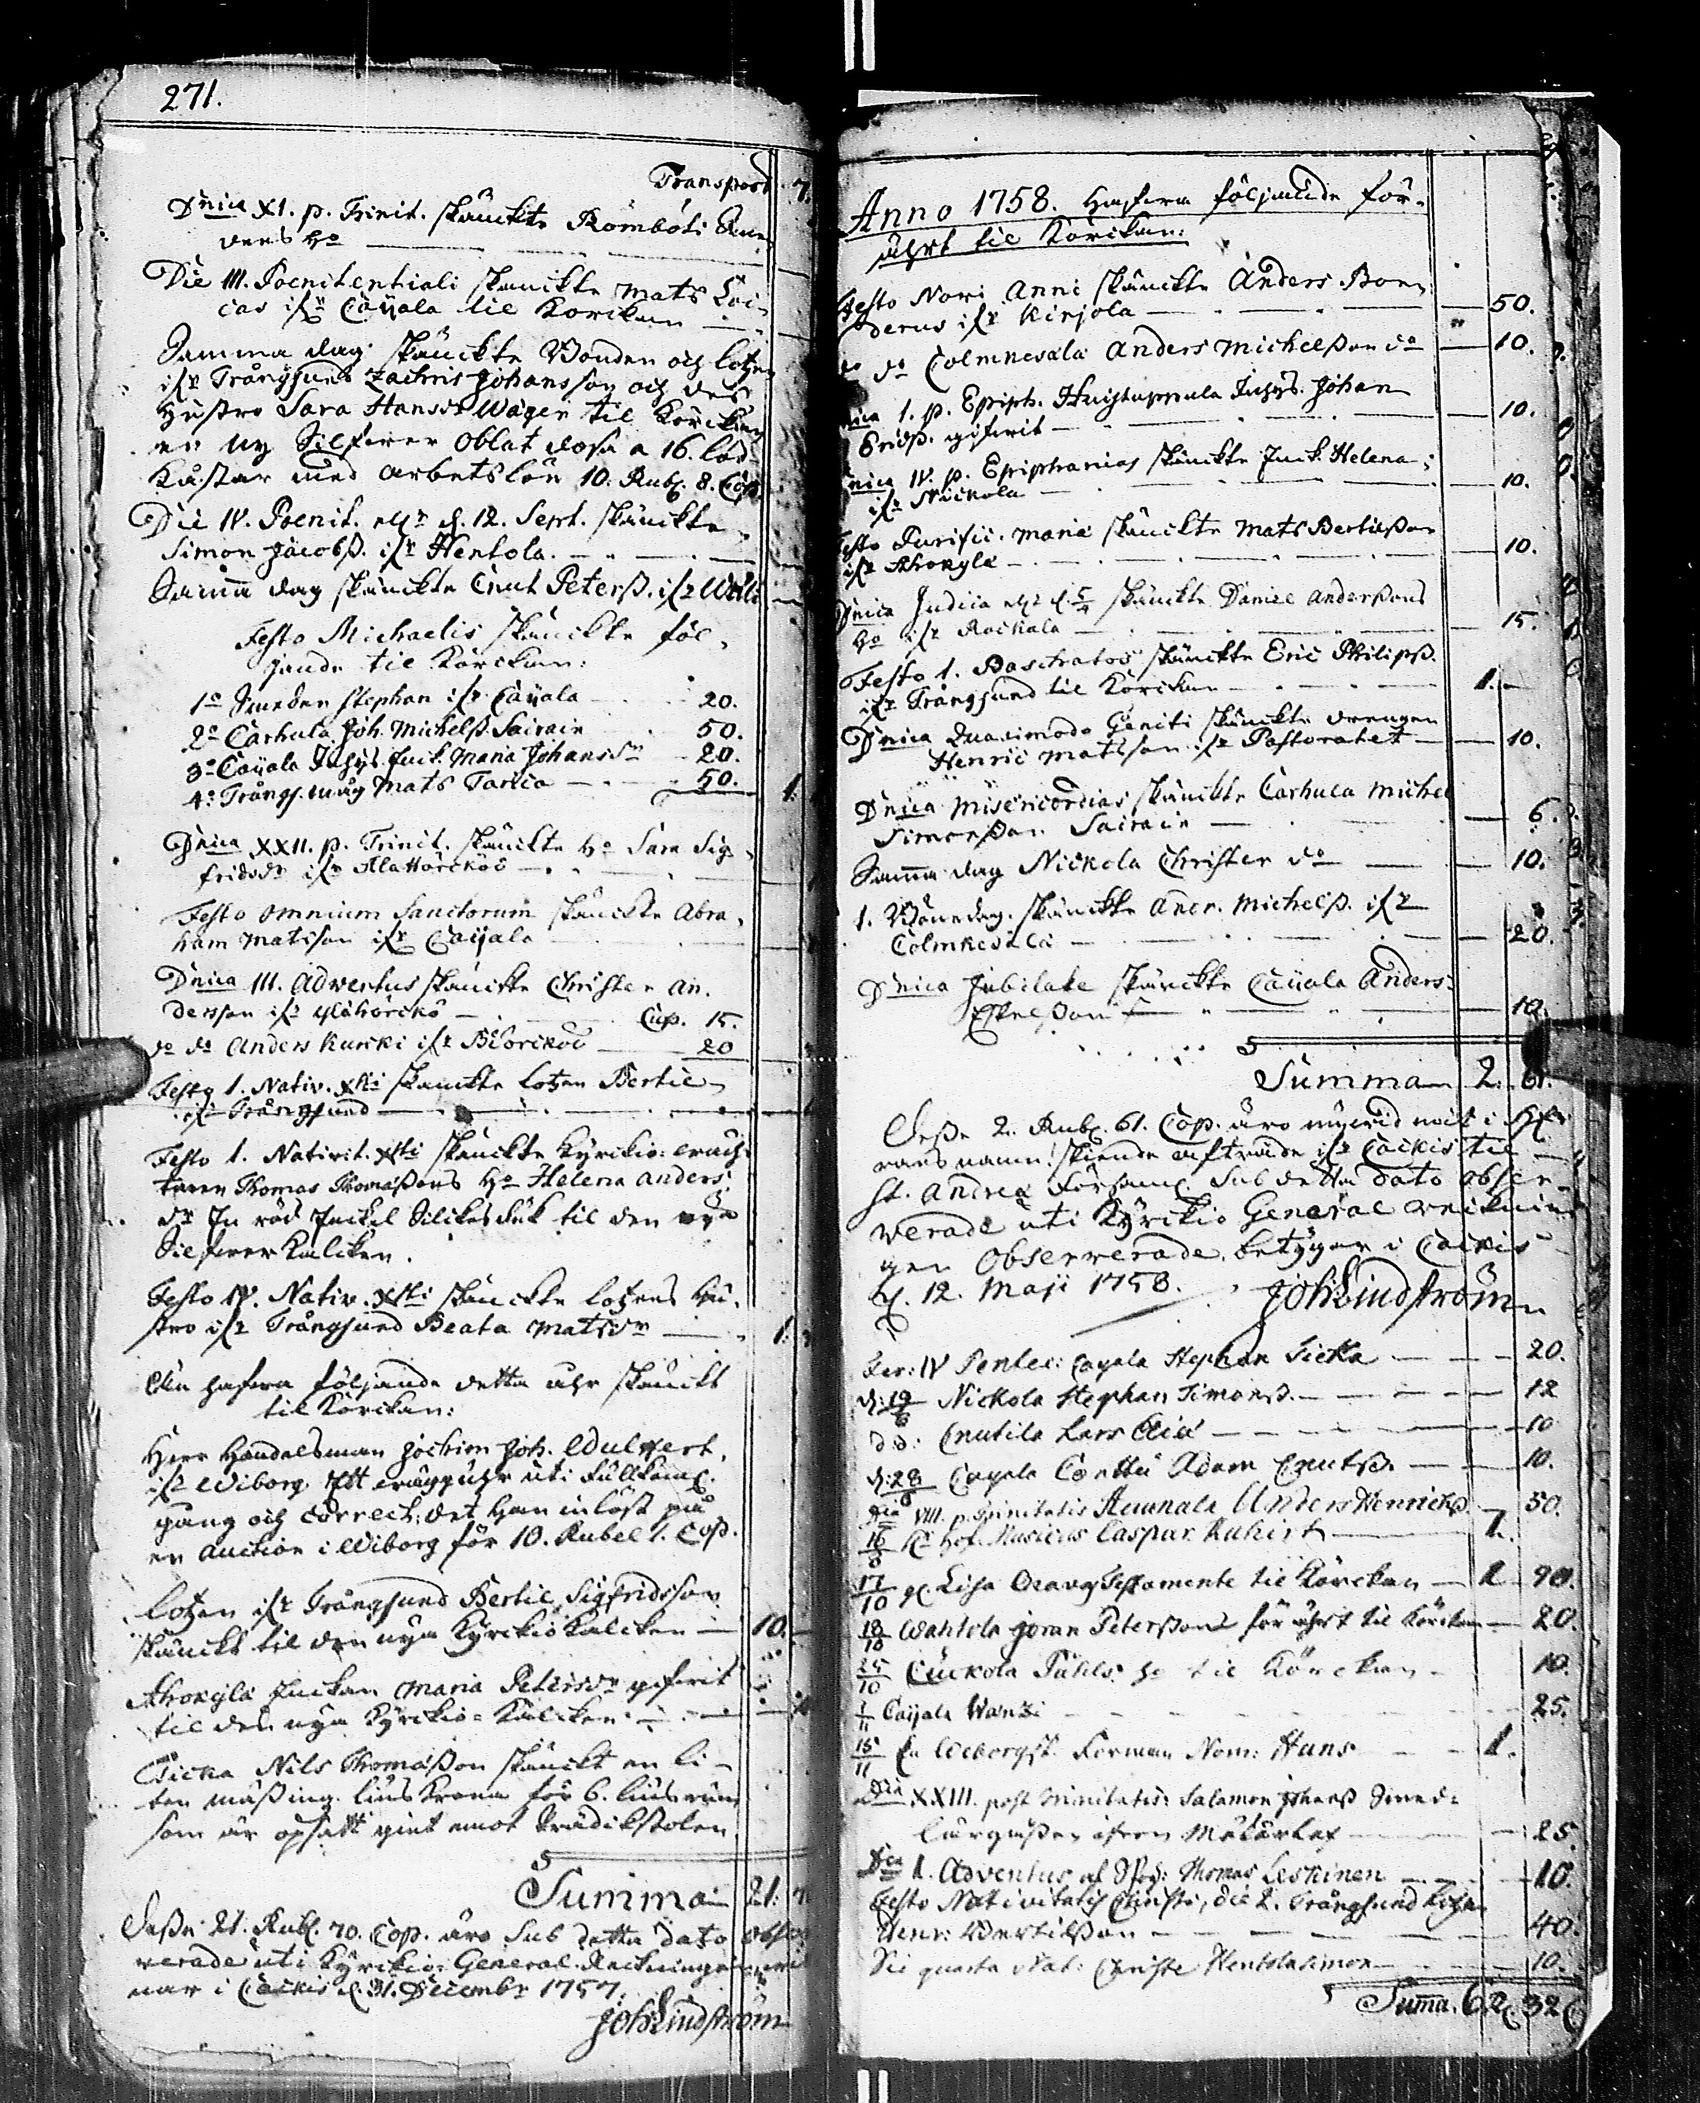 271.
Transport 7.
Dnica XI. p. Trinit. skänckte Römböti
dens Ho
Die III. Poenitentiali skänckte Mats Loi
cas ifr Cayala til Körckan
Samma dag skänckte Bonden och Lotzen
ifr Trångsund Zachris Johansson och des
Hustro Sara Hansdr Wagen til Körckan
en ny Silfwer Oblat dosa a 16. lod
Kåstar med arbetslön 10. Rub. 8. Cop.
Die IV. Poenit. d. 12. Sept. skänckte
Simon Jacobss. ifr Hentola.
Samma dag skänckte Cnut Peterss. ifr
Festo Michaelis skänckte föl-
jande til Körckan:
1o Smeden Stephan ifr Cayala 20.
2o Carhula Joh. Michelss. Sairain 50.
3o Cayala Inhys. Enck. Maria Johansdr 20.
4o Trångs. måg Mats Tarcia 50. 1.
Dnica XXII. p. Trinit. skänckte Ho Sara Sig-
fridsdr ifr Alattörcköö
Festo Omnium Sanctorum skänckte Abra-
ham Matsson ifr Cayala
Dnica III. Adventus skänckte Christer An-
dersson ifr Cop. 15.
do do Anders Kurki ifr Biörcköö 20
Festo 1. Nativ. Xsti skänckte Lotzen Bertil
ifr Trångsund
Festo 1. Nativit. Xsti skänckte Kyrckio:
Thomas Thomæssons Ho Helena Anders
dr En röd Enckel Silckes duk til den nya
Silfwer Kalcken.
Festo IV. Nativ. Xsti skänckte Lotzens Hu-
stro ifr Trångsund Beata Matsdr 1.
Än hafwa följande detta åhr skänckt
til Körckan:
Herr Handelsman Jochim Joh.
ifr Wiborg Ett wägguhr uti fullkoml.
gång och correct, det han inlöst på
en auction i Wiborg för 10. Rubel 1. Cop.
Lotzen ifr Trångsund Bertil Sigfridsson
skänckt til den nya Kyrckio Kalcken 10.
Ahokylä Enckan Maria Petersdr gifwit
til den nya Kyrckio-Kalcken
Ticka Nils Thomæsson skänckt en li-
ten mässing lius Krona för 6. liusrum
som är opsatt gent emot Prädikstolen
Summa 21:
Desse 21. Rub. 70. Cop. äro Sub detta dato obser
verade uti Kyrckio: General Räckninge
nar i Cackis d. 31. Decembr 1757.
Joh Lindström
Anno 1758. Hafwa följande för-
ährt til Körckan:
Festo Novi Anni skänckte Anders Bon
derus ifr Kirjola 50.
do do Colmnesala Anders Michelsson do 10.
Dnica 1. p. Epiph. Inhys. Johan
Ericss. gifwit 10.
Dnica IV. p. Epiphanias skänckte Enck. Helena
ifr Nickola 10.
Festo Purific. Mariæ skänckte Mats Bertilsson
ifr Ahokylä 10.
Dnica Judica skänckte Daniel Anderssons
Ho ifr Rockala 15.
Festo 1. Paschatos skänckte Eric Philipss.
ifr Trångsund til Körckan 1.
Dnica Quasimodo Geniti skänckte drengen
Henric Matsson ifr Pastoratet 10.
Dnica Misericordias skänckte Carhula Michel
Simonsson Sairain 6.
Samma dag Nickola Christer do 10.
1. Bönedag. skänckte Andr. Michelss. ifr
Colmnesala 20.
Dnica Jubilate skänckte Cayala Anders
Eskelsson 10.
Summa 2. 61.
Desse 2. Rub. 61. Cop. äro
afträde ifr Cackis til
St. Andreæ Församl. Sub detta dato obser-
werade uti Kyrckio General Räcknin
gen Observerade, betygar i Cackis
d. 12. Maji 1758. Joh Lindström
Fer: IV Pentec: Cayala Stephan Ticka 20.
d: 19/6 Nickola Stephan Simonss. 12
d.d: Cnutila Lars 10
d: 28 Cayala Conttu Adam Cnutss. 10.
Dca VIII. p. Trinitatis Anders Henricss. 50.
16/8 Hof. Musicus Caspar Kuhirt 1.
17/10 Lisa Testamente til Körckan 1 90.
18/10 Wahtola Jöran Peterssons förährt til Körckan 20.
25/10 Cuckola Påhls Ho til Körckan 10.
1/11 Cayala Wanki 25.
15/11 En Wiborgsk. Forman Nom: Hans 1.
Dca XXIII. post Trinitatis Salamon Johanss Smed-
25
Dca 1. Adventus af Thomas Leskinen 10.
Festo Nativitatis Christi, die 2. Trångsund Lotzen
Henr: Bertilsson 40.
Die quarta Nat: Christi Hentola Simon 10.
Suma. 6 R. 32 C